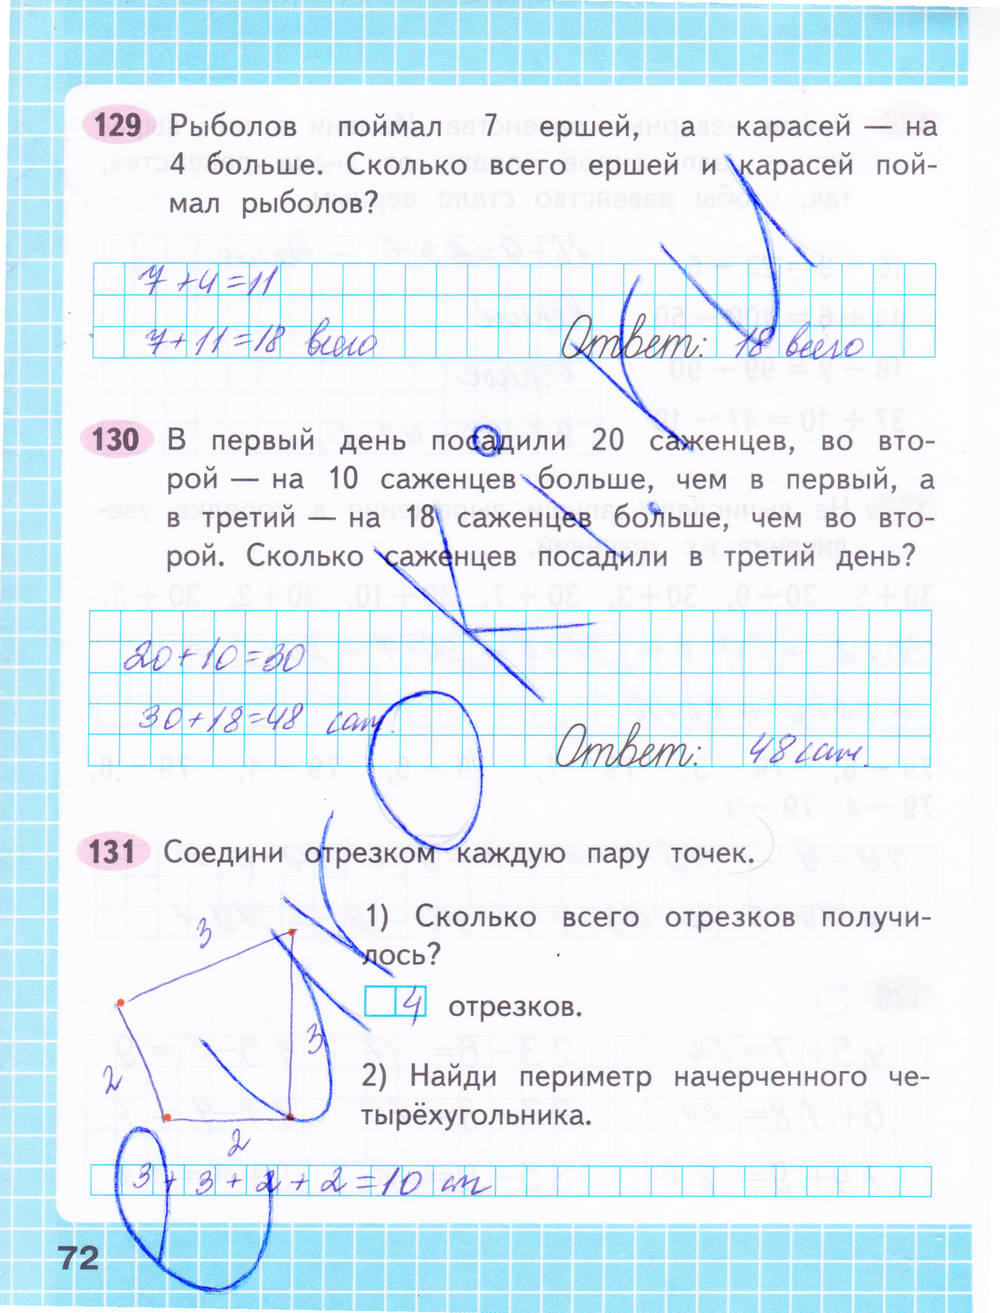 129 Рыболов поймал 7 ершей, а карасей — на
4 больше. Сколько всего ершей и карасей пой-
мал рыболов?
7+4=11
7+11=18 всего Ответ: 18 всего
130 В первый день посадили 20 саженцев, во вто-
рой — на 10 саженцев больше, чем в первый, а
в третий — на 18 саженцев больше, чем во вто-
рой. Сколько саженцев посадили в третий день?
20+10=30
30+18=48 саж.
Ответ: 48 саж.
131 Соедини отрезком каждую пару точек.
1) Сколько всего отрезков получи-
лось?
4 отрезков.
2) Найди периметр начерченного че-
тырёхугольника.
3
3
2
2
3+3+2+2=10 см
72